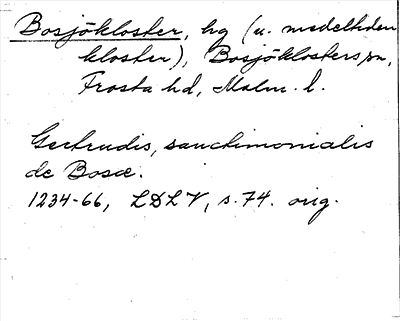 Bosjökloster, hg (u. medeltiden
kloster), Bosjöklosters sn,
Frosta hd, Malm. l.
Gertrudis, sanctimonialis
de Bosæ.
1234-66, LDLV, s. 74. orig.